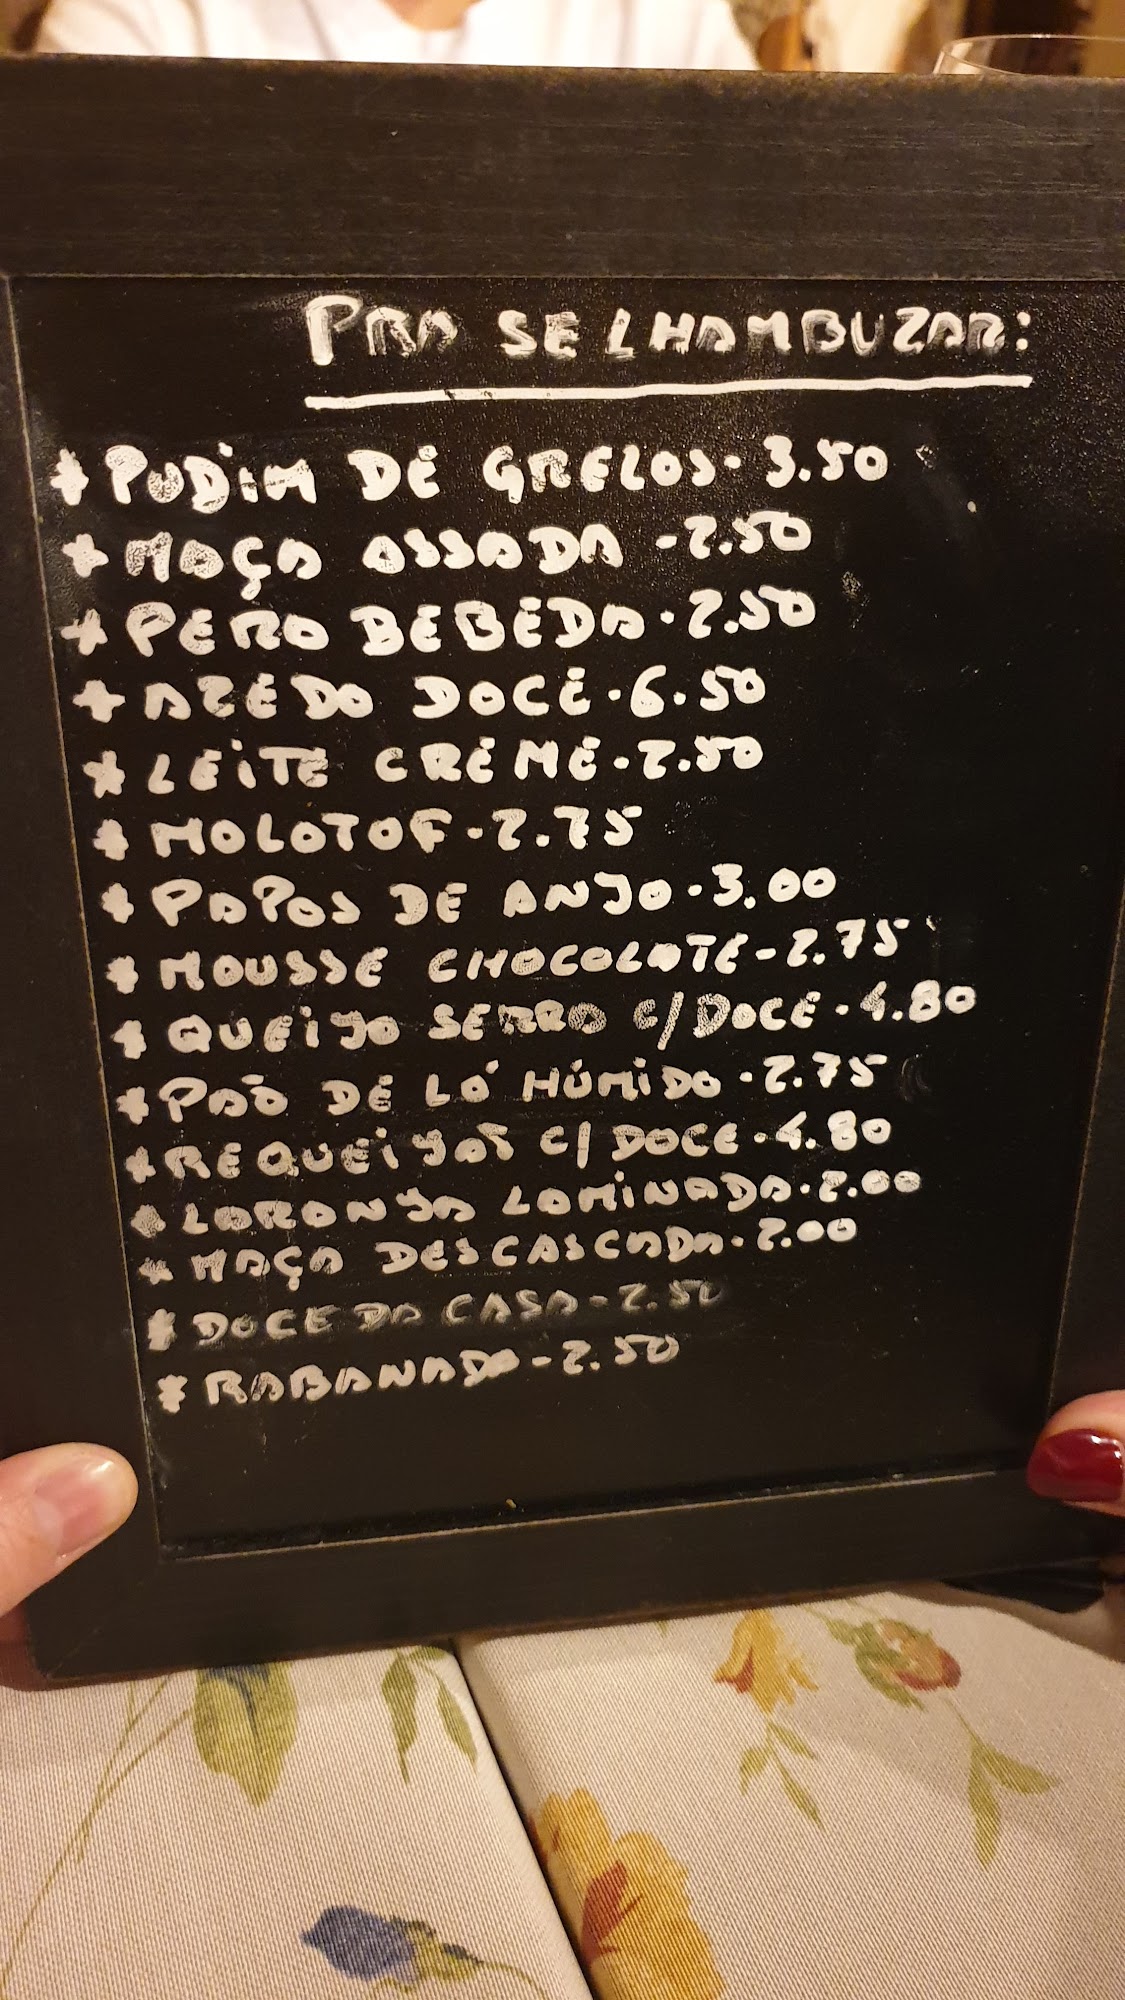 PRA SE LHAMBUZAR:
* PUDIM DE GRELOS - 3.50
* MAÇA ASSADA - 2.50
* PERA BEBEDA - 2.50
* AZEDO DOCE - 6.50
* LEITE CREME - 2.50
* MOLOTOF - 2.75
* PAPOS DE ANJO - 3.00
* MOUSSE CHOCOLATE - 2.75
* QUEIJO SERRA C/DOCE - 4.80
* PAÕ DE LÓ HÚMIDO - 2.75
* REQUEIJAÕ C/DOCE - 4.80
* LARANJA LAMINADA - 2.00
* MAÇA DESCASCADA - 2.00
* DOCE DA CASA - 2.50
* RABANADA - 2.50